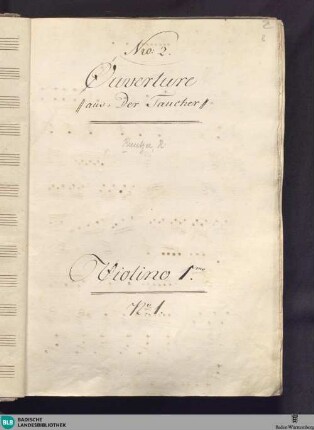 2
Nro: 2.
Ouverture
// aus Der Taucher //
Violino 1mo
No 1.
BLB BADISCHE
LANDESBIBLIOTHEK
Baden-Württemberg